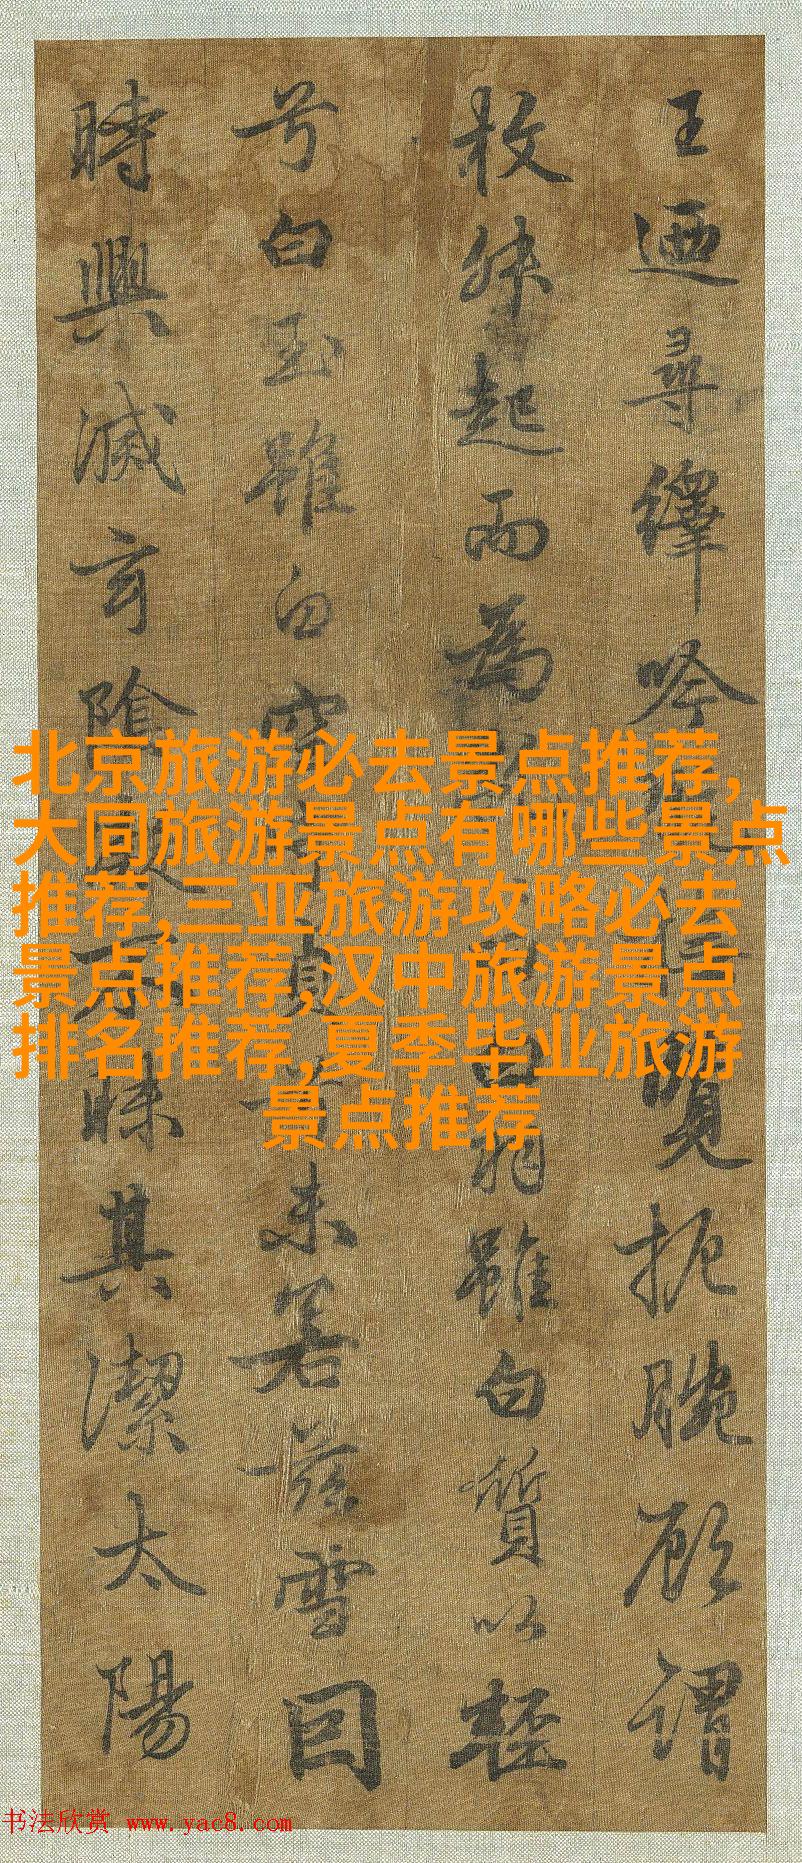 王迺尋繹吟覽扼腕顧謂
枚叔起而為羽雖白質以輕
兮白玉雖白空貞兮未若茲雪因
時興滅玄陰不昧其潔太陽
北京旅游必去景点推荐,
大同旅游景点有哪些景点
推荐,三亚旅游攻略必去
景点推荐,汉中旅游景点
排名推荐,夏季毕业旅游
景点推荐
书法欣赏 www.yac8.com